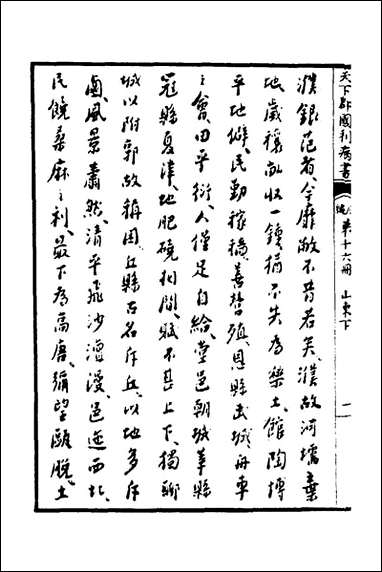 天下郡國利病書
第十六冊 山東下 一
濮銀范者、今靡敝不昔若矣、濮故河壖棄
地、歲穰畝收一鍾、猶不失為樂土、館陶博
平地僻、民勤稼穡、善蓄殖、恩縣武城舟車
之會、田平衍、人僅足自給、堂邑朝城莘縣
冠縣夏津、地肥磽相間、賦不甚上下、獨聊
城以附郭故稱困、丘縣古名斥丘、以地多斥
鹵、風景蕭然、清平飛沙澶漫、邑迤西北、
民饒桑麻之利、最下為高唐、彌望甌脫、土